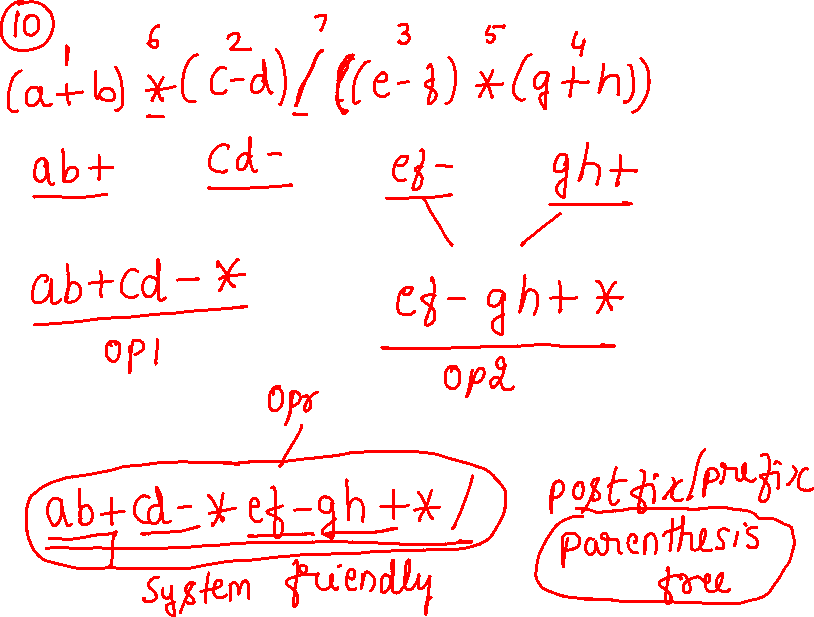 10
1 6 2 7 3 5 4
(a+b) * (c-d) / ((e-f) * (g+h))
ab+ cd- ef- gh+
ab+cd-* ef-gh+*
OP1 OP2
Opr
ab+cd-*ef-gh+*/
system friendly
postfix/prefix
parenthesis
free